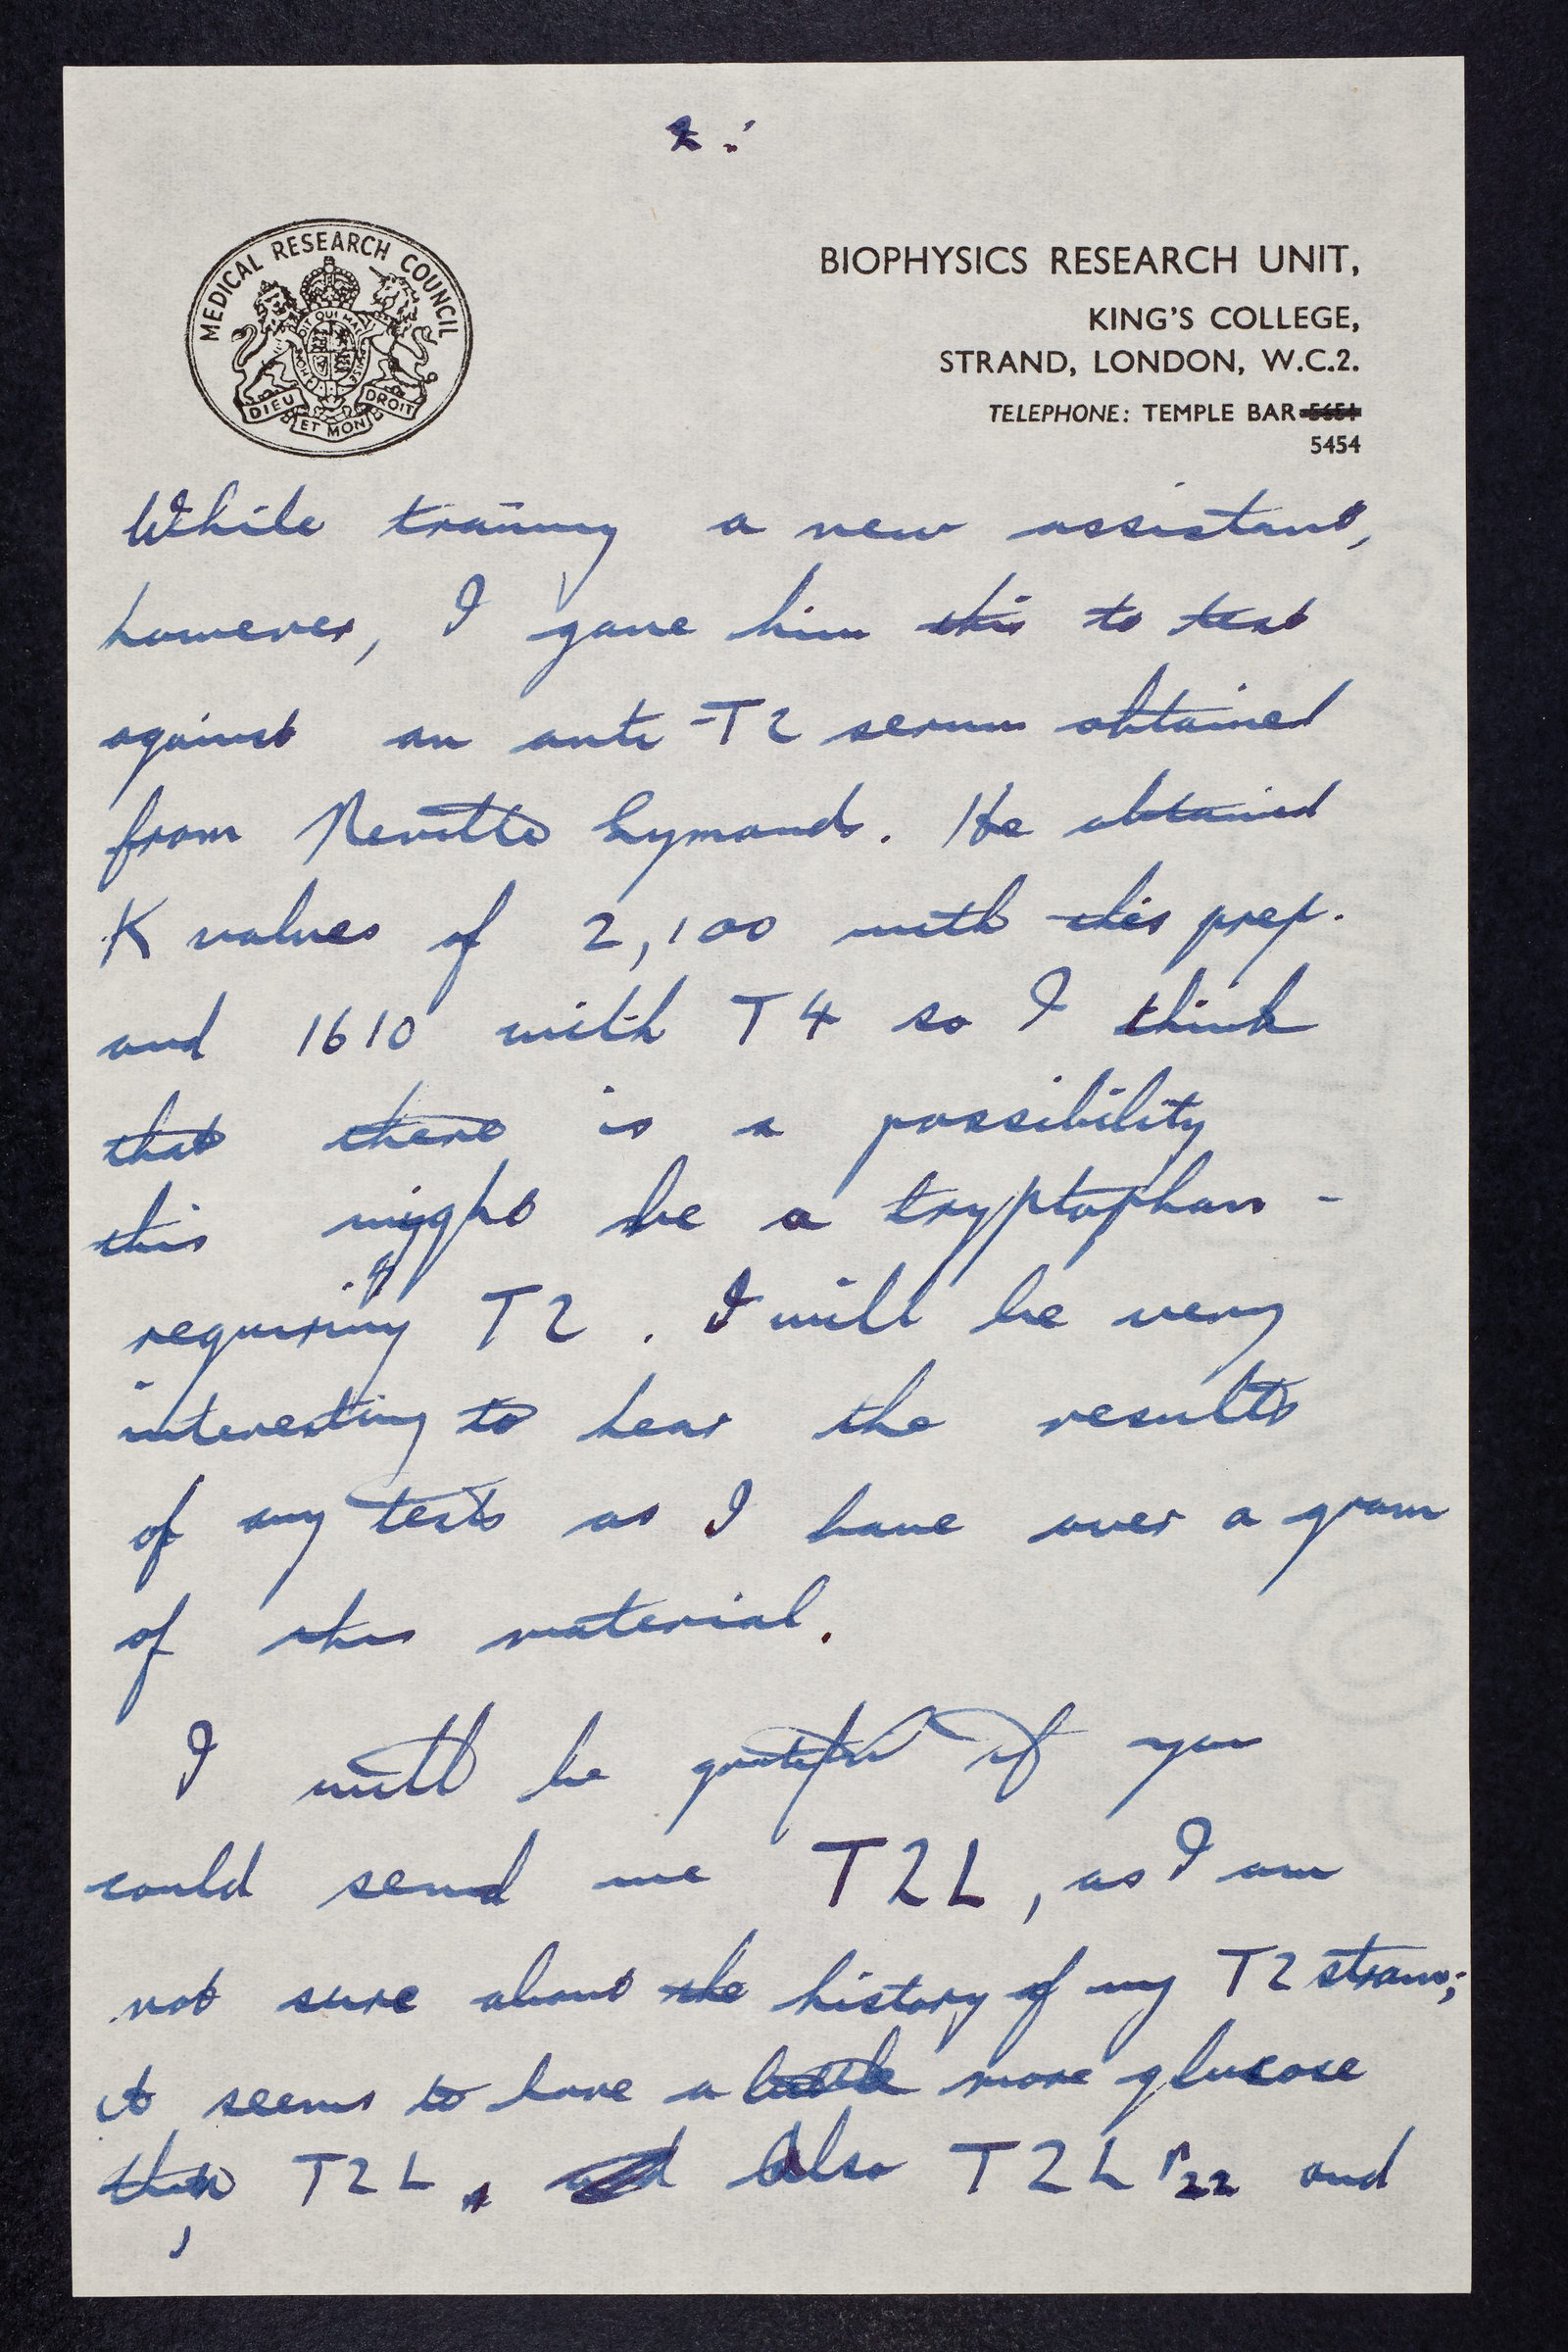 2.
MEDICAL RESEARCH COUNCIL
DIEU ET MON DROIT
BIOPHYSICS RESEARCH UNIT,
KING'S COLLEGE,
STRAND, LONDON, W.C.2.
TELEPHONE: TEMPLE BAR 5651
5454
While training a new assistant,
however, I gave him this to test
against an anti-T2 serum obtained
from Neville Symonds. He obtained
K values of 2,100 with this prep.
and 1610 with T4 so I think
that there is a possibility
this might be a tryptophan-
requiring T2. I will be very
interesting to hear the results
of any tests as I have over a gram
of this material.
I will be grateful if you
could send me T2L, as I am
not sure about the history of my T2 strain;
it seems to have a little more glucose
than T2L. and Also T2Lr22 and